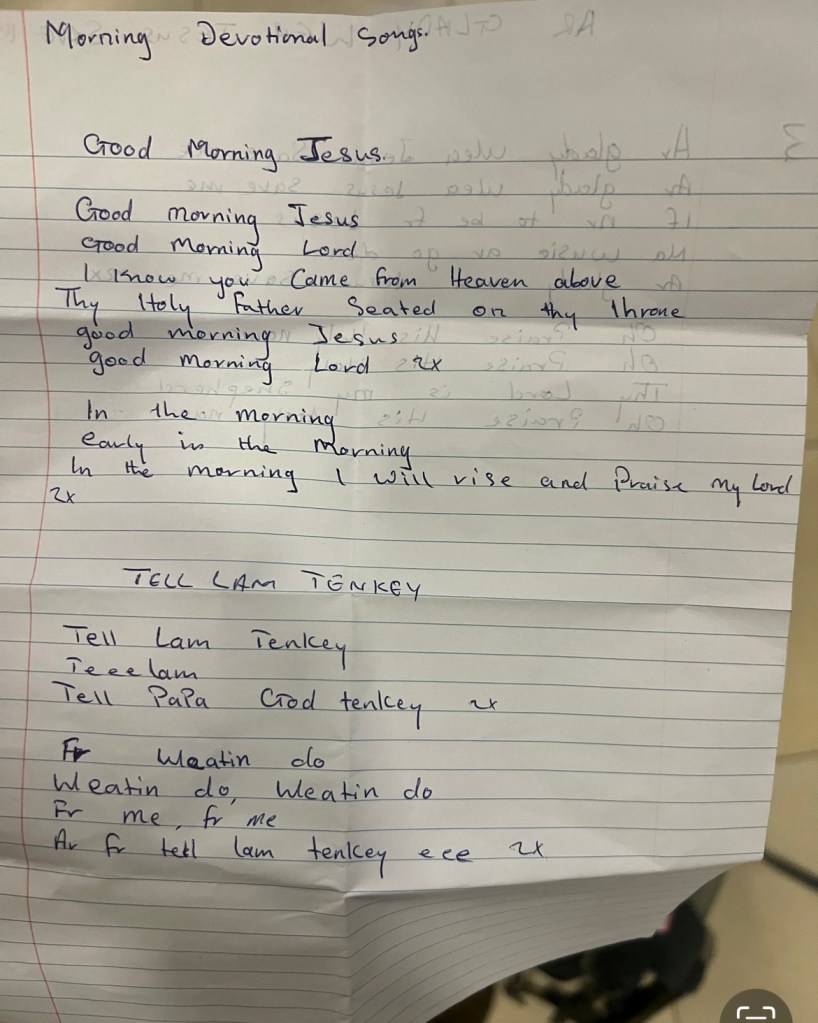 Morning Devotional Songs.
Good Morning Jesus.
Good morning Jesus
Good Morning Lord
I Know you Came from Heaven above
Thy Holy Father Seated on thy throne
good morning Jesus
good morning Lord 2x
In the morning
early in the Morning
In the morning I will rise and Praise My Lord
2x
TELL LAM TENKEY
Tell Lam Tenkey
Teeelam
Tell PaPa God tenkey 2x
Fr Weatin do
Weatin do, Weatin do
Fr me, fr me
Av fr tell lam tenkey eee 2x